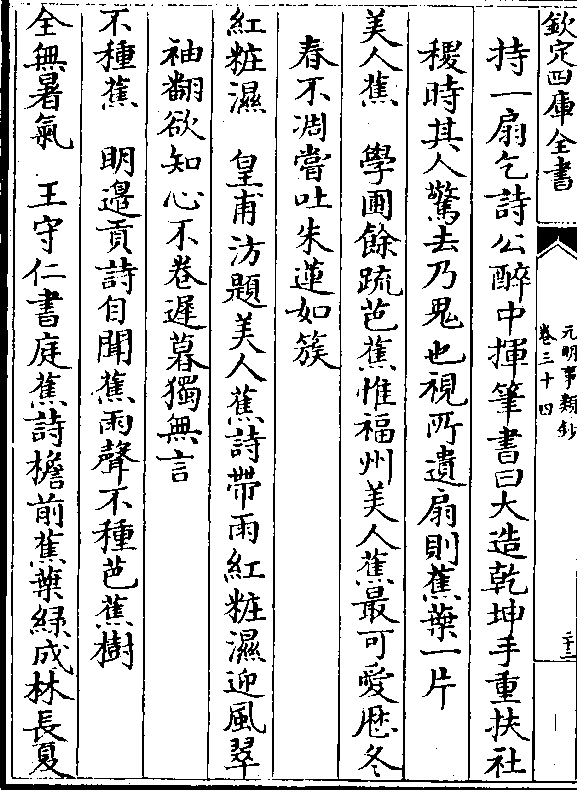 欽定四庫全書
元明事類鈔
卷三十四
二十三
持一扇乞詩公醉中揮筆書曰大造乾坤手重扶社
稷時其人驚去乃鬼也視所遺扇則蕉葉一片
美人蕉　學圃餘疏芭蕉惟福州美人蕉最可愛歴冬
春不凋嘗吐朱蓮如簇
紅粧濕　皇甫汸題美人蕉詩帶雨紅粧濕迎風翠
袖翻欲知心不卷遲暮獨無言
不種蕉　明邉貢詩自聞蕉雨聲不種芭蕉樹
全無暑氣　王守仁書庭蕉詩檐前蕉葉緑成林長夏